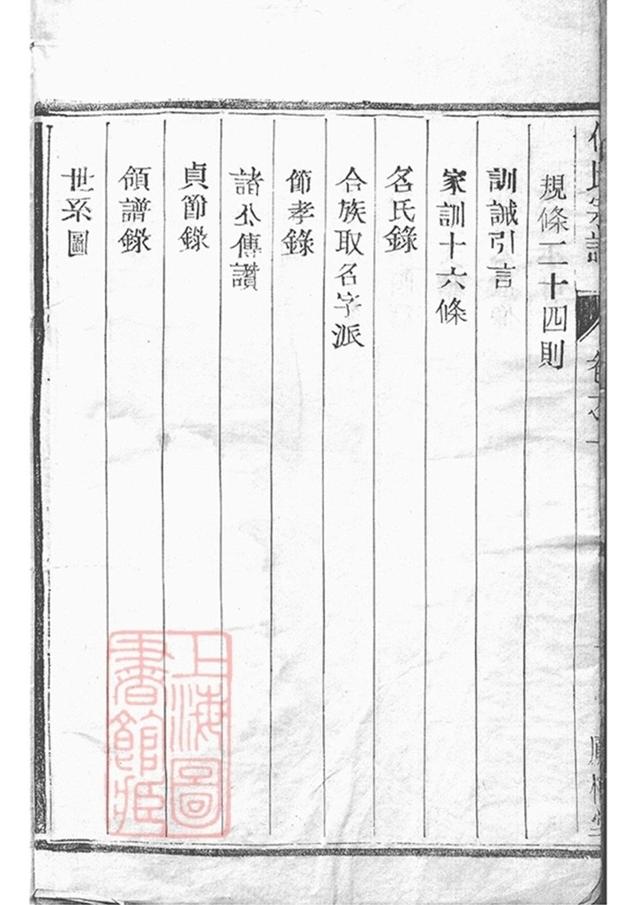 規條二十四則
訓誡引言
家訓十六條
名氏錄
合族取名字派
節孝錄
諸公傳讚
貞節錄
領譜錄
世系圖
上海圖
書館藏